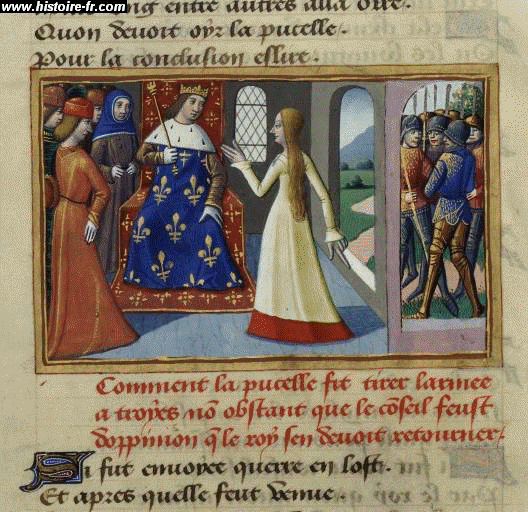 www.histoire-fr.com
entre autres alla dire.
Quon devoit oyr la pucelle.
Pour la conclusion eslire.
Comment la pucelle fit tirer larmee
a troyes nō obstant que le cōseil feust
doppinion q̄ le roy sen devoit retourner.
Si fut envoyee querre en lost.
Et apres quelle feut venue.